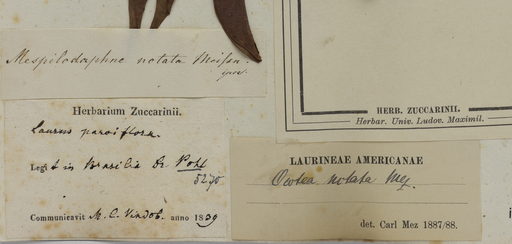 Mespilodaphne notata Meissn.
Herbarium Zuccarinii.
Laurus parviflora.
Legit in Brasilia Dr. Pohl
5270
Communicavit M. C. Vindob. anno 1839
HERB. ZUCCARINII.
Herbar. Univ. Ludov. Maximil.
LAURINEAE AMERICANAE
Ocotea notata Mez.
det. Carl Mez 1887/88.